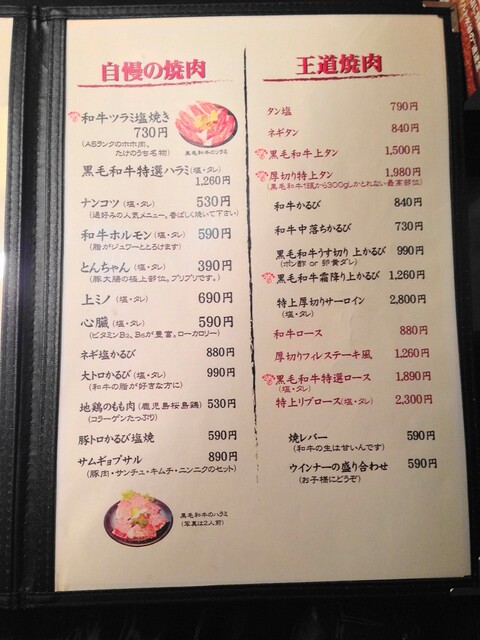 自慢の焼肉
和牛ツラミ塩焼き
730円
(A5ランクのホホ肉、
たけのうち名物)
黒毛和牛のツラミ
黒毛和牛特選ハラミ(塩・タレ)
1,260円
ナンコツ(塩・タレ) 530円
(通好みの人気メニュー。香ばしく焼いて下さい)
和牛ホルモン(塩・タレ) 590円
(脂がジュワーととろけます)
とんちゃん(塩・タレ) 390円
(豚大腸の極上部位。プリプリです。)
上ミノ(塩・タレ) 690円
心臓(塩・タレ) 590円
(ビタミンB₂、B₆が豊富。ローカロリー)
ネギ塩かるび 880円
大トロかるび(塩・タレ) 990円
(和牛の脂が好きな方に)
地鶏のもも肉(鹿児島桜島鶏) 530円
(コラーゲンたっぷり)
豚トロかるび塩焼 590円
サムギョプサル 890円
(豚肉・サンチュ・キムチ・ニンニクのセット)
黒毛和牛のハラミ
(写真は2人前)
王道焼肉
タン塩 790円
ネギタン 840円
黒毛和牛上タン 1,500円
厚切り特上タン 1,980円
(黒毛和牛1頭から300gしかとれない最高部位)
和牛かるび 840円
和牛中落ちかるび 730円
黒毛和牛うす切り 上かるび 990円
(ポン酢 or 卵黄ダレ)
黒毛和牛霜降り上かるび 1,260円
特上厚切りサーロイン 2,800円
(塩・タレ)
和牛ロース 880円
厚切りフィルステーキ風 1,260円
黒毛和牛特選ロース 1,890円
(塩・タレ)
特上リブロース(塩・タレ) 2,300円
焼レバー 590円
(和牛の生は甘いんです)
ウインナーの盛り合わせ 590円
(お子様にどうぞ)